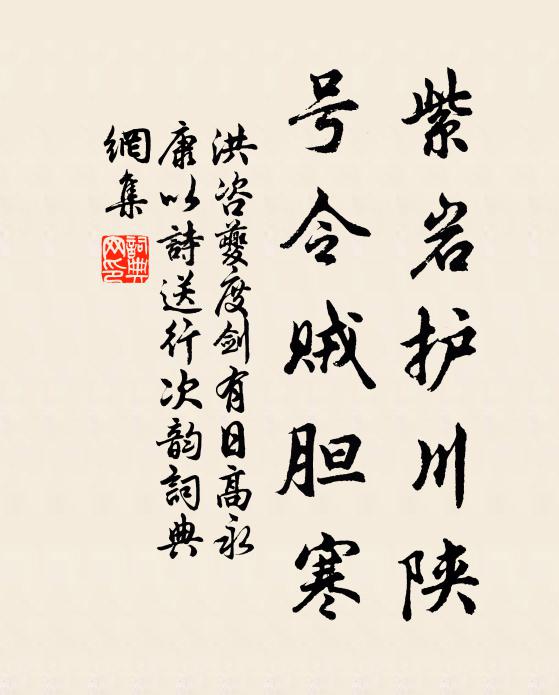 紫岩护川陕
号令贼胆寒
洪咨夔度剑有日高永
康以詩送行次韵詞典
網集
詞典
网印